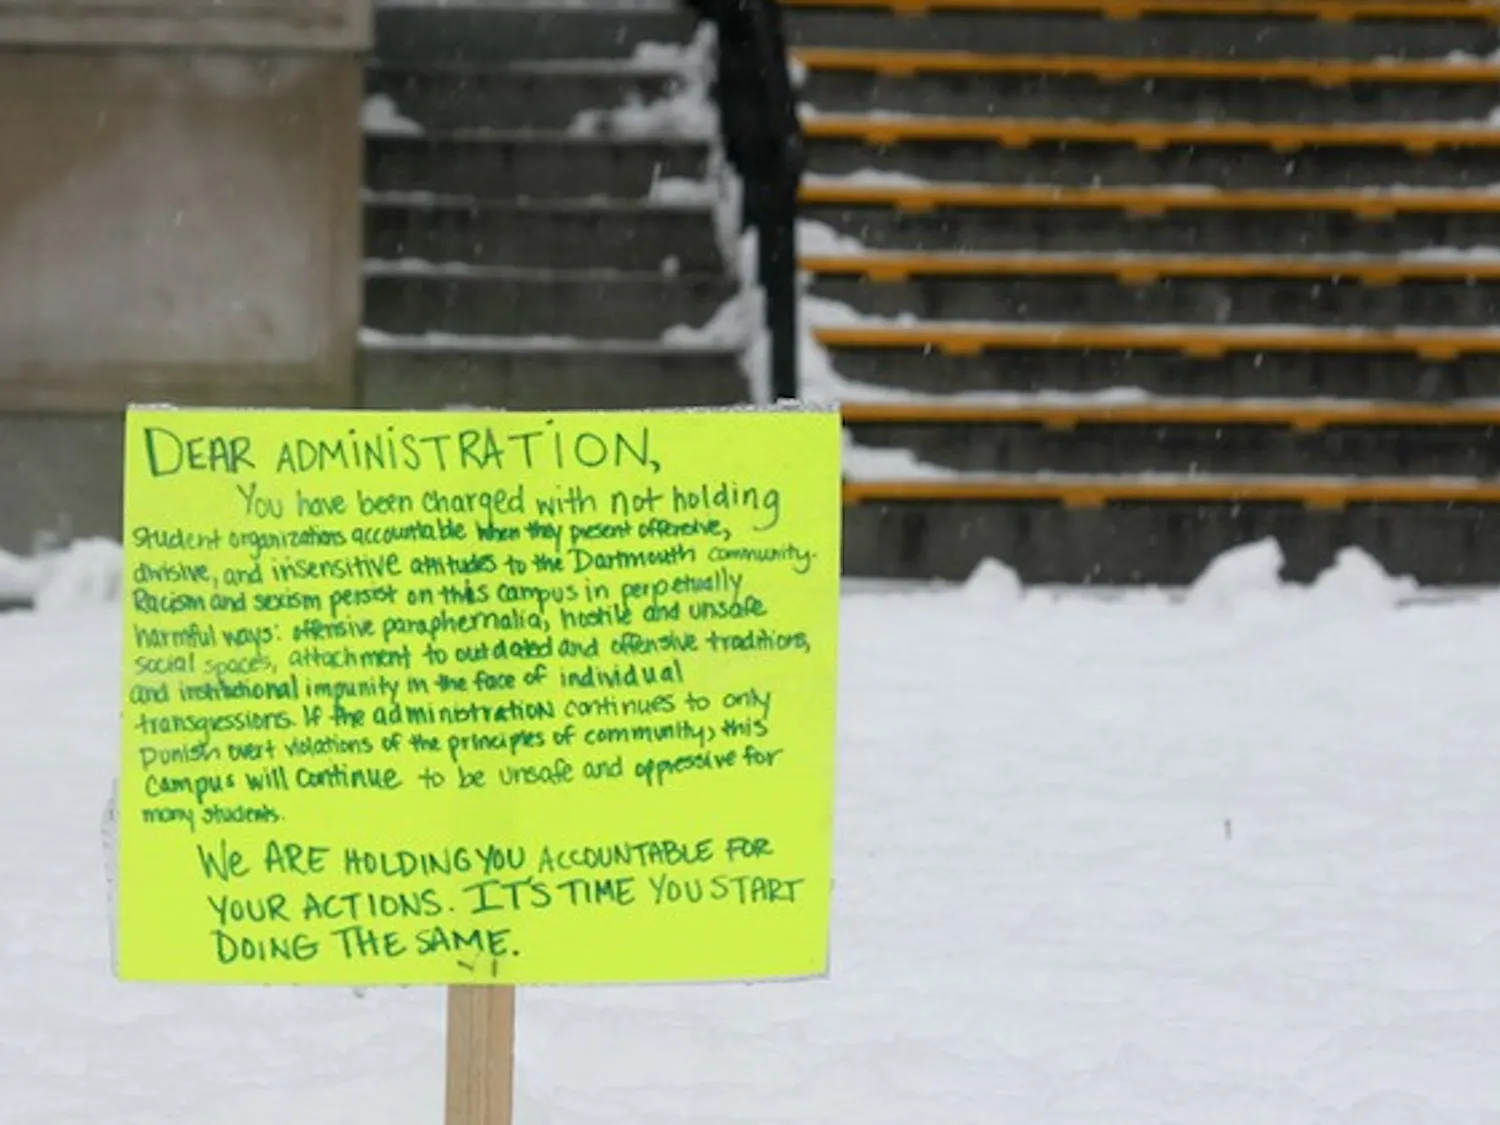 DEAR ADMINISTRATION,
You have been charged with not holding
student organizations accountable when they present offensive,
divisive, and insensitive attitudes to the Dartmouth community.
Racism and sexism persist on this campus in perpetually
harmful ways: offensive paraphernalia, hostile and unsafe
social spaces, attachment to outdated and offensive traditions,
and institutional impunity in the face of individual
transgressions. If the administration continues to only
punish overt violations of the principles of community, this
campus will continue to be unsafe and oppressive for
many students.
WE ARE HOLDING YOU ACCOUNTABLE FOR
YOUR ACTIONS. IT'S TIME YOU START
DOING THE SAME.